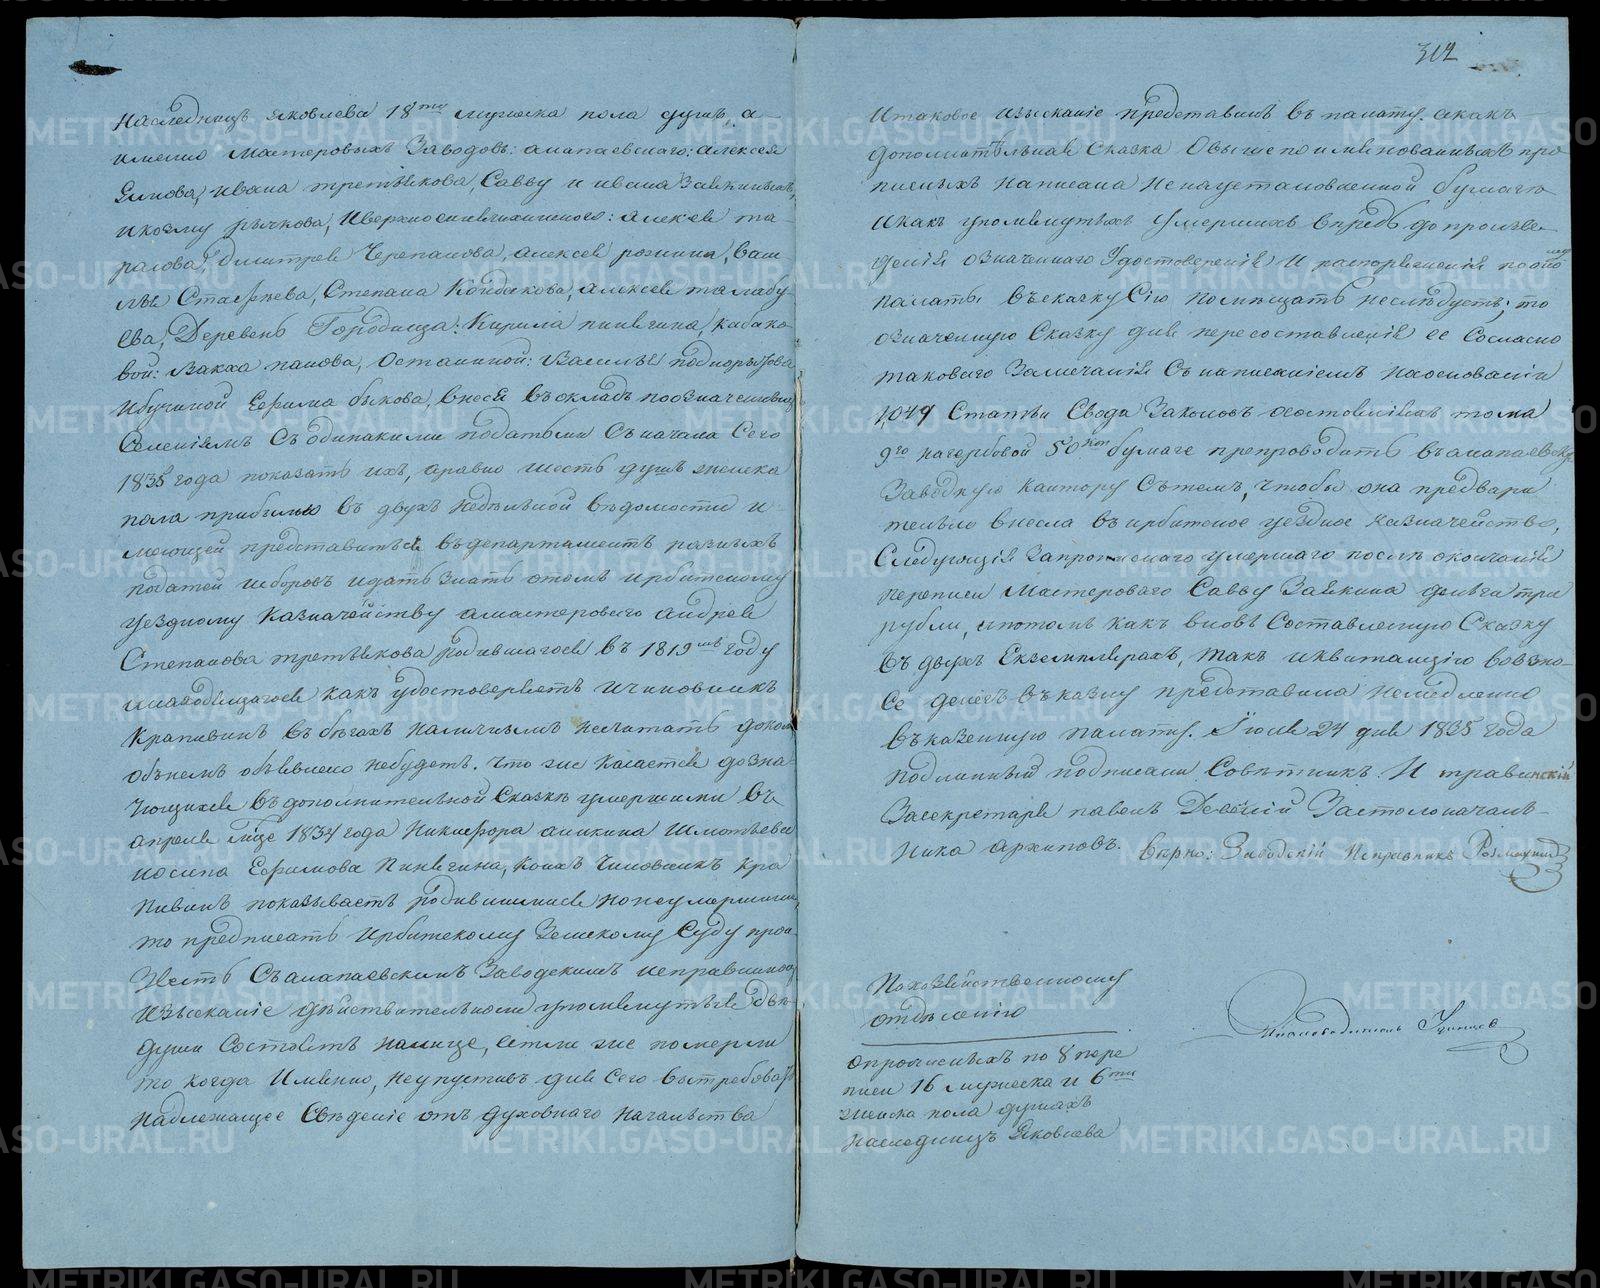 наследницъ Яковлева 18ти мужеска пола душъ, а
именно мастеровыхъ Заводовъ: алапаевскаго: алексея
Ивана третьякова, Савву и ивана Заякиныхъ,
икозму рычкова, Иверхнесинячихинскаго: алексея та-
ралова, Дмитрея Черепанова, алексея росина, васи
лья Стафѣева, Степана Койдакова, алексея
ева, Деревень Городища: Кирила пинягина, кабако
вой: Вакха панова, Останиной: Василья подкорытова
Ибучиной Ефима быкова, внося въ окладъ поозначеннымъ
Селеніямъ Съ одинакими податьми Съ начала Сего
1835 года показать ихъ, аравно шесть душъ женска
пола прибылью въ двухъ недѣльной вѣдомости и
меющей представиться въ департаментъ разныхъ
податей исборовъ идать знать отомъ ирбитскому
уездному казначейству амастероваго андрея
Степанова третьякова родившагося въ 1819мъ году
инаходящагося какъ удостоверяетъ ичиновникъ
Крапивинъ въ бѣгахъ наличнымъ несчитать доколе
объ немъ объявлено небудетъ. Что же касается дозна-
чущихся въ дополнительной Сказкѣ умершими въ
апреле 1834 года Никифора аникина
иосипа Ефимова Пинягина, коихъ чиновникъ кра
пивинъ показываетъ родившимися нонеумершими,
то предписать Ирбитскому Земскому Суду прои
звесть Съ алапаевскимъ Заводскимъ исправникомъ
изысканіе дѣйствительноли упомянутыя двѣ
души Состоятъ налице, естли же померли
то когда Именно, неупустивъ для Сего вытребовать
надлежащее Свѣденіе отъ духовнаго начальства
312
Итаковое изысканіе представить въ палату. акакъ
дополнительная Сказка Овышепоименованныхъ про
писныхъ написана ненаустановленной бумаге
икакъ упомянутыхъ умершихъ впредь до произве-
денія означеннаго Удостоверенія И распоряженія поону
палаты въ сказку Сію помещать неслѣдуетъ; то
означенную Сказку для пересоставленія ее Согласно
таковаго Замечанія Съ написаніемъ наосновании
1049 Статьи Свода Законовъ осостояніяхъ тома
9го нагербовой 50 коп бумаге препроводить въ алапаевскую
Заводскую контору Съ темъ, чтобы она предвари
тельно внесла въ ирбитское уездное казначейство,
Следующія Запрописнаго умершаго послѣ окончанія
переписи мастероваго Савву Заякина деньги три
рубли, ипотомъ какъ вновь Составленную Сказку
въ двухъ Екземплярахъ, такъ иквитанцію во взно-
се денегъ въ казну представила немедленно
въ казенную палату. Іюля 24 дня 1835 года
Подлинный подписали Совѣтникъ И травинскій
Засекретаря павелъ Застолоначаль-
ника архиповъ. Вѣрно: Заводскій Исправникъ
Похозяйственному
отдѣленію
опрописныхъ по 8 пере
писи 16 мужеска и 6ти
женска пола душахъ
наследницъ Яковлева